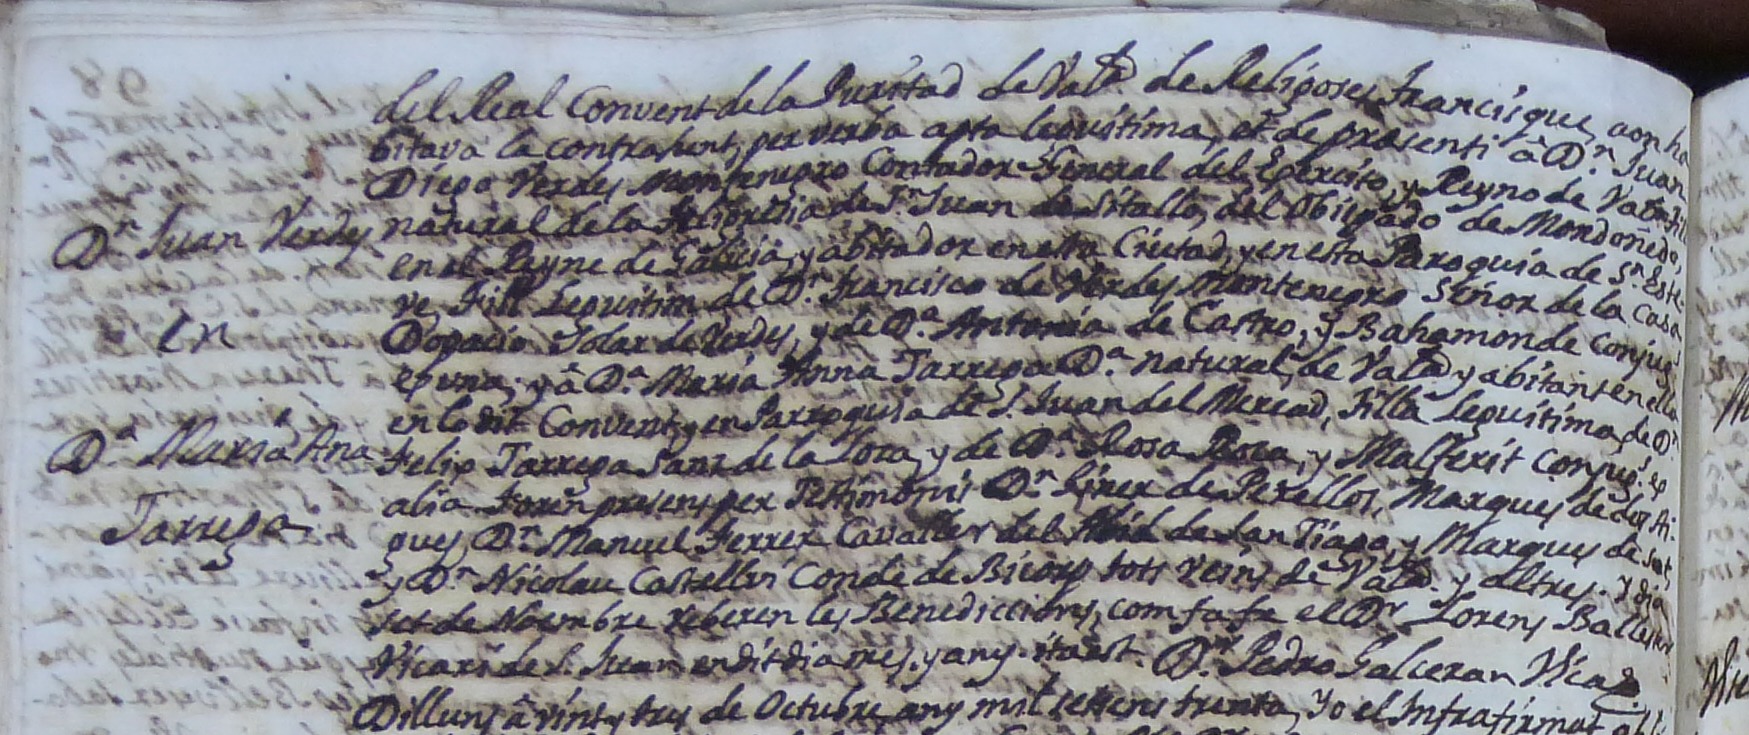 del Real Convent de la Puritat de Vala. de Religoses Francisques aon ha
bitava la contrahent, per verba apta leguitima, et de presenti â Dn. Juan
Diego Verdes Montenegro Contador General del Egercito, y Reyno de Vala.
natural de la Feligresia de Sn. Juan de Sitallo, del Obispado de Mondoñedo,
Dn. Juan Verdes
en el Reyne de Galicia, y abitador en esta Ciutad, y en esta Paroquia de Sn. Este-
ve, Fill Leguitim de Dn. Francisco de Verdes Montenegro Señor de la Casa
en
Solar de Verdes, y de Da. Antonia de Castro, y Bahamonde conjuges
y â Da. Maria Anna Tarrega Da. natural de Vala. y abitant en ella
en lo dit Convent, y en Parroquia de S. Juan del Mercad, Filla Leguitima de Dn.
Da. Maria Ana
Tarrega
Felix Tarrega Sanz de la Losa, y de Da. Rosa Roca, y Malferit conjug. ex
alia Foren presens per Testimonis Dn. Giner de Perellos, Marques de dos Ai-
gues, Dn. Manuel Ferrer Cavaller del de San Tiago, y Marques de
y Dn. Nicolau Castellvi Conde de Bicorp tots veins de Vala. y altres. Y dia
set de Noembre reberen les Benediccions, com fa fe el Dr. Lorens Ballester
Vicari de S. Juan en dit dia mes, y any. ita est. Dr. Pedro Galceran Vica.
Dilluns â vint y tres de Octubre, any mil setsens trenta, Yo el Infrafirmat